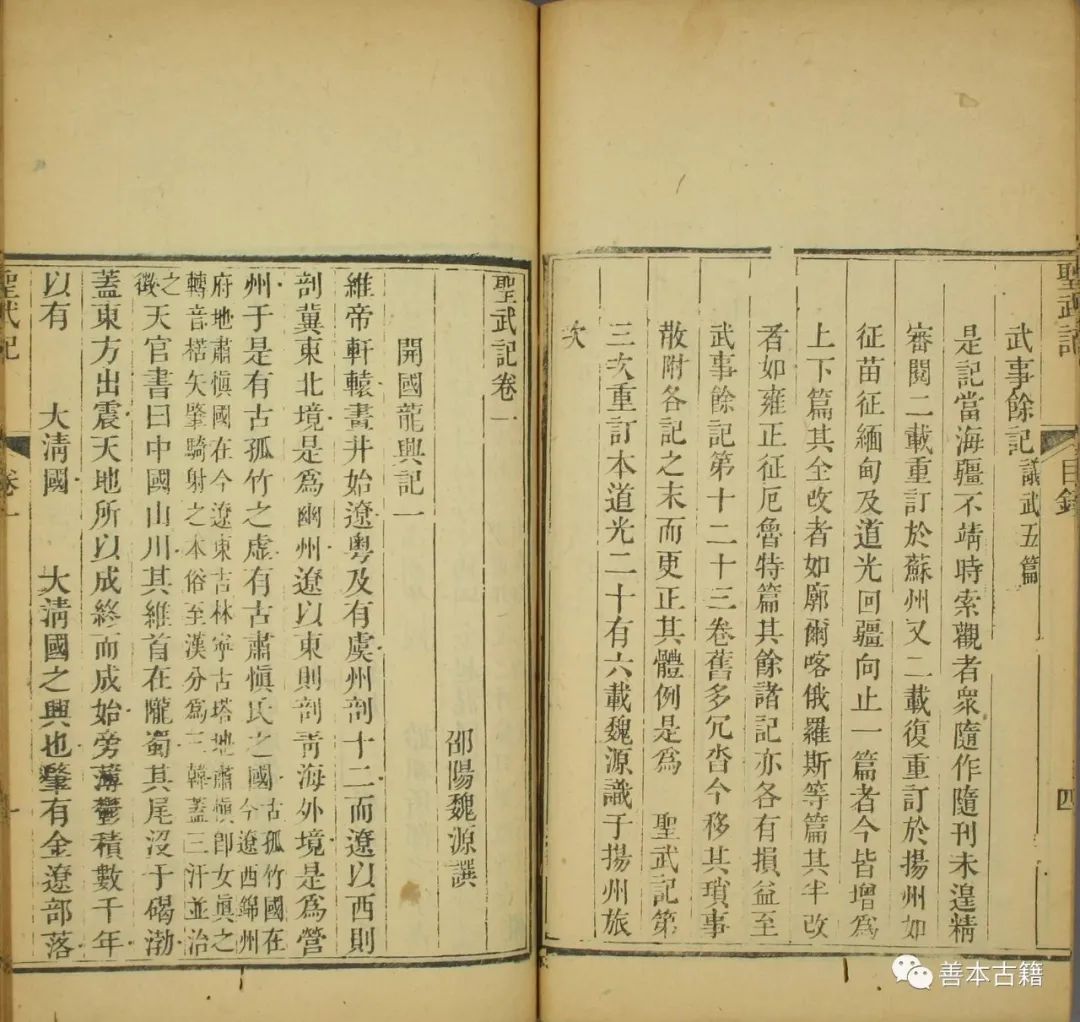 聖武記
目錄
四
武事餘記議武五篇
是記當海疆不靖時索觀者眾隨作隨刊未遑精
審閱二載重訂於蘇州又二載復重訂於揚州如
征苗征緬甸及道光回疆向止一篇者今皆增爲
上下篇其全改者如廓爾喀俄羅斯等篇其半改
者如雍正征厄魯特篇其餘諸記亦各有損益至
武事餘記第十二十三卷舊多冗沓今移其瑣事
散附各記之末而更正其體例是爲 聖武記第
三次重訂本道光二十有六載魏源識于揚州旅
次
聖武記卷一
邵陽魏源譔
開國龍興記一
維帝軒轅畫井始遼粵及有虞州剖十二而遼以西則
剖冀東北境是爲幽州遼以東則剖靑海外境是爲營
州于是有古孤竹之虛有古肅愼氏之國古孤竹國在今遼西錦州
府地肅愼國在今遼東吉林寧古塔地肅愼卽女眞之
轉音楛矢肇騎射之本俗至漢分爲三韓蓋三汗並治
之徵天官書曰中國山川其維首在隴蜀其尾沒于碣渤
蓋東方出震天地所以成終而成始旁薄鬱積數千年
以有 大淸國 大淸國之興也肇有金遼部落
聖武記
卷一
一
善本古籍